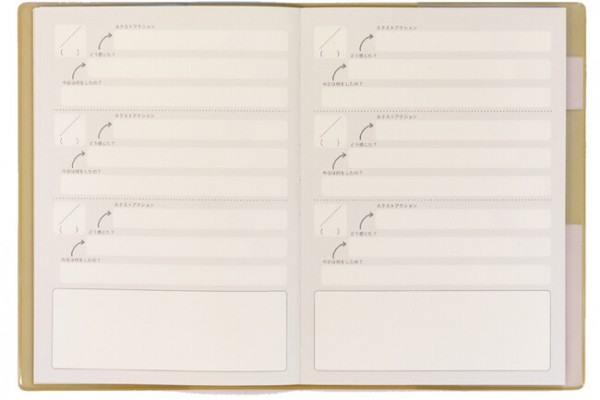 ネクストアクション
/
( )
どう感じた?
今日は何をしたの?
ネクストアクション
/
( )
どう感じた?
今日は何をしたの?
ネクストアクション
/
( )
どう感じた?
今日は何をしたの?
ネクストアクション
/
( )
どう感じた?
今日は何をしたの?
ネクストアクション
/
( )
どう感じた?
今日は何をしたの?
ネクストアクション
/
( )
どう感じた?
今日は何をしたの?